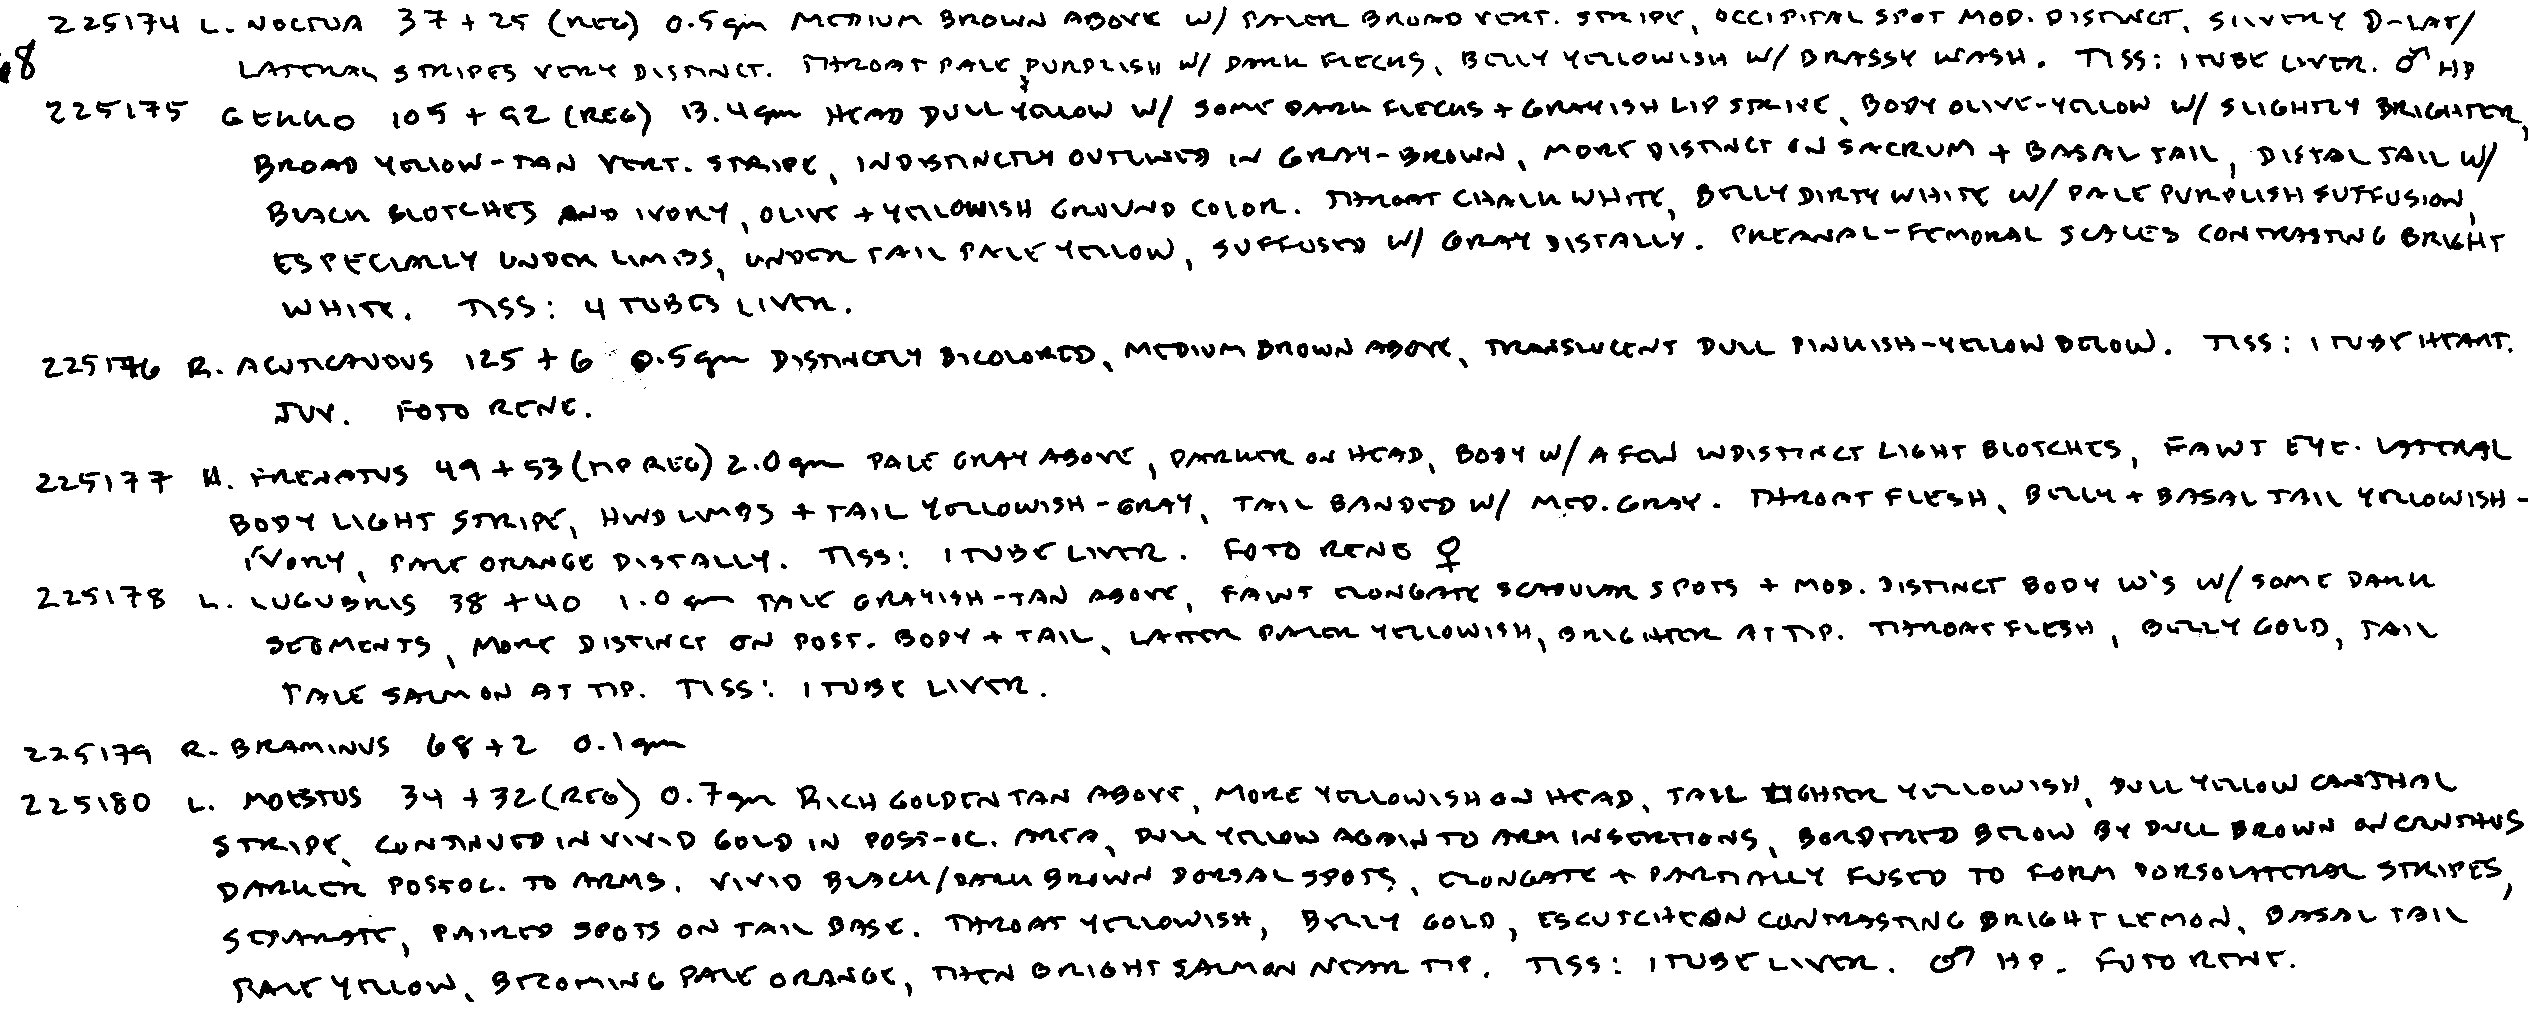 225174 L. NOCTUA 37 + 25 (REG) 0.5gm MEDIUM BROWN ABOVE W/ PALER BROAD VERT. STRIPE, OCCIPITAL SPOT MOD. DISTINCT, SILVERY D-LAT/
68
LATERAL STRIPES VERY DISTINCT. THROAT PALE PURPLISH W/ DARK FLECKS, BELLY YELLOWISH W/ BRASSY WASH. TISS: 1 TUBE LIVER. ♂ HP
225175 GEKKO 105 + 92 (REG) 13.4gm HEAD DULL YELLOW W/ SOME DARK FLECKS + GRAYISH LIP STRIPE, BODY OLIVE-YELLOW W/ SLIGHTLY BRIGHTER,
BROAD YELLOW-TAN VERT. STRIPE, INDISTINCTLY OUTLINED IN GRAY-BROWN, MORE DISTINCT ON SACRUM + BASAL TAIL, DISTAL TAIL W/
BLACK BLOTCHES AND IVORY, OLIVE + YELLOWISH GROUND COLOR. THROAT CHALK WHITE, BELLY DIRTY WHITE W/ PALE PURPLISH SUFFUSION,
ESPECIALLY UNDER LIMBS, UNDER TAIL PALE YELLOW, SUFFUSED W/ GRAY DISTALLY. PREANAL-FEMORAL SCALES CONTRASTING BRIGHT
WHITE. TISS: 4 TUBES LIVER.
225176 R. ACUTICAUDUS 125 + 6 0.5gm DISTINCTLY BICOLORED, MEDIUM BROWN ABOVE, TRANSLUCENT DULL PINKISH-YELLOW BELOW. TISS: 1 TUBE HEART.
JUV. FOTO RENE.
225177 H. FRENATUS 49 + 53 (TIP REG) 2.0gm PALE GRAY ABOVE, DARKER ON HEAD, BODY W/ A FEW INDISTINCT LIGHT BLOTCHES, FAINT EYE-LATERAL
BODY LIGHT STRIPE, HIND LIMBS + TAIL YELLOWISH-GRAY, TAIL BANDED W/ MED. GRAY. THROAT FLESH, BELLY + BASAL TAIL YELLOWISH-
IVORY, PALE ORANGE DISTALLY. TISS: 1 TUBE LIVER. FOTO RENE ♀
225178 L. LUGUBRIS 38 + 40 1.0gm PALE GRAYISH-TAN ABOVE, FAINT ELONGATE SCAPULAR SPOTS + MOD. DISTINCT BODY W'S W/ SOME DARK
SEGMENTS, MORE DISTINCT ON POST. BODY + TAIL, LATTER PALER YELLOWISH, BRIGHTER AT TIP. THROAT FLESH, BELLY GOLD, TAIL
PALE SALMON AT TIP. TISS: 1 TUBE LIVER.
225179 R. BRAMINUS 68 + 2 0.1gm
225180 L. MOESTUS 34 + 32 (REG) 0.7gm RICH GOLDEN TAN ABOVE, MORE YELLOWISH ON HEAD, TAIL LIGHTER YELLOWISH, DULL YELLOW CANTHAL
STRIPE, CONTINUED IN VIVID GOLD IN POST-OC. AREA, DULL YELLOW AGAIN TO ARM INSERTIONS, BORDERED BELOW BY DULL BROWN ON CANTHUS
DARKER POSTOC. TO ARMS. VIVID BLACK/DARK BROWN DORSAL SPOTS, ELONGATE + PARTIALLY FUSED TO FORM DORSOLATERAL STRIPES,
SEPARATE, PAIRED SPOTS ON TAIL BASE. THROAT YELLOWISH, BELLY GOLD, ESCUTCHEON CONTRASTING BRIGHT LEMON, BASAL TAIL
PALE YELLOW, BECOMING PALE ORANGE, THEN BRIGHT SALMON NEAR TIP. TISS: 1 TUBE LIVER. ♂ HP. FOTO RENE.